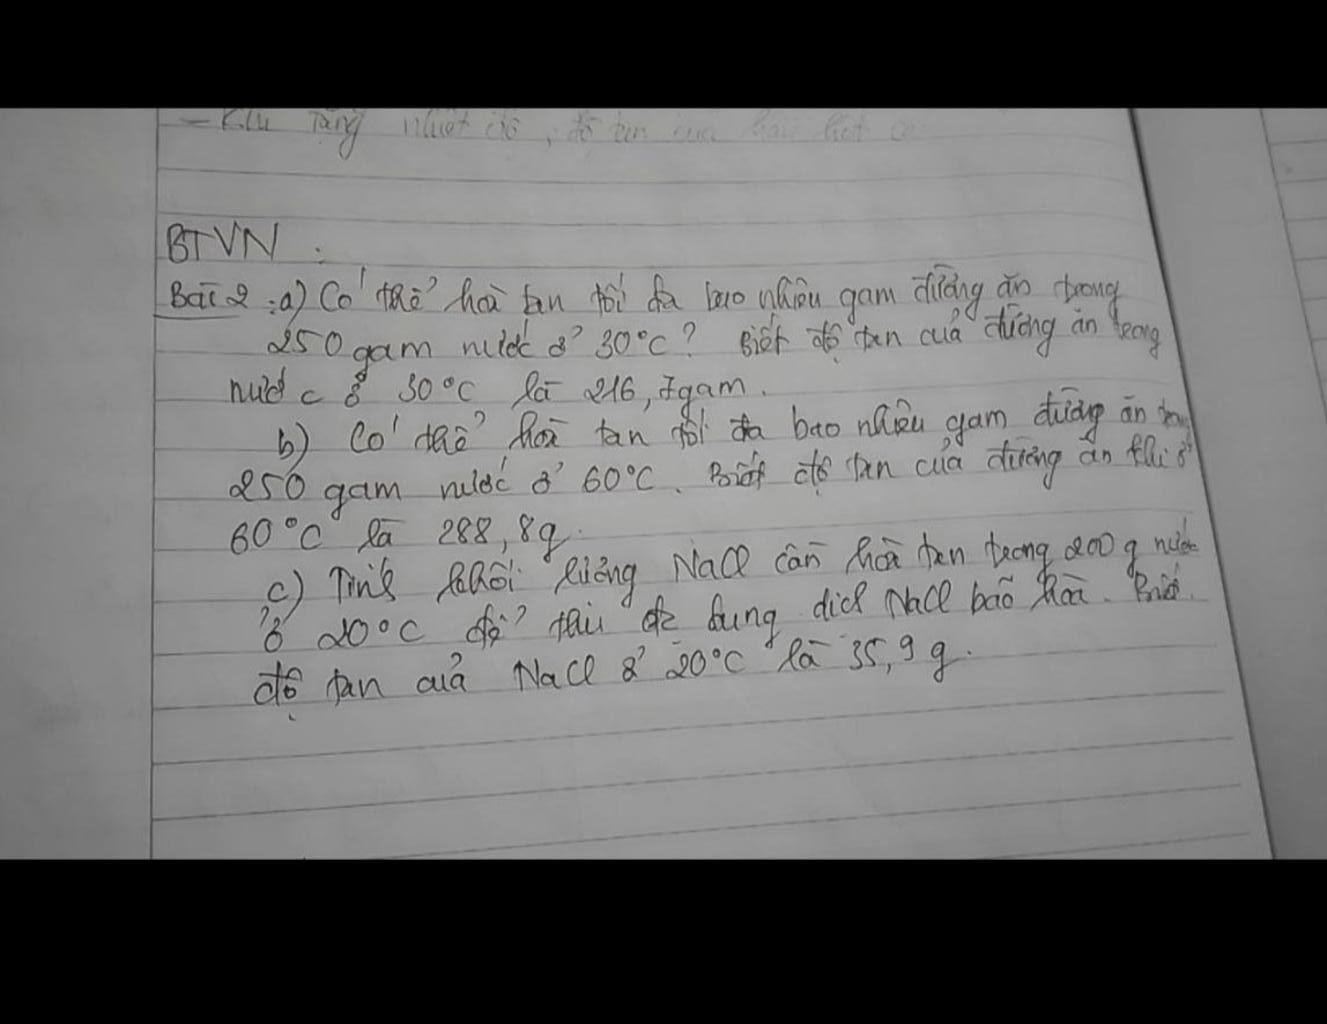 - Khi tăng nhiệt độ, độ tan của hầu hết c
BTVN :
Bài 2 : a) Có thể hoà tan tối đa bao nhiêu gam đường ăn trong
250 gam nước ở 30°C? Biết độ tan của đường ăn trong
nước ở 30°C là 216,7gam.
b) Có thể hoà tan tối đa bao nhiêu gam đường ăn trong
250 gam nước ở 60°C. Biết độ tan của đường ăn khi ở
60°C là 288,8g.
c) Tính khối lượng NaCl cần hoà tan trong 200 g nước
ở 20°C để thu đc dung dịch NaCl bão hoà. Biết
độ tan của NaCl ở 20°C là 35,9 g.